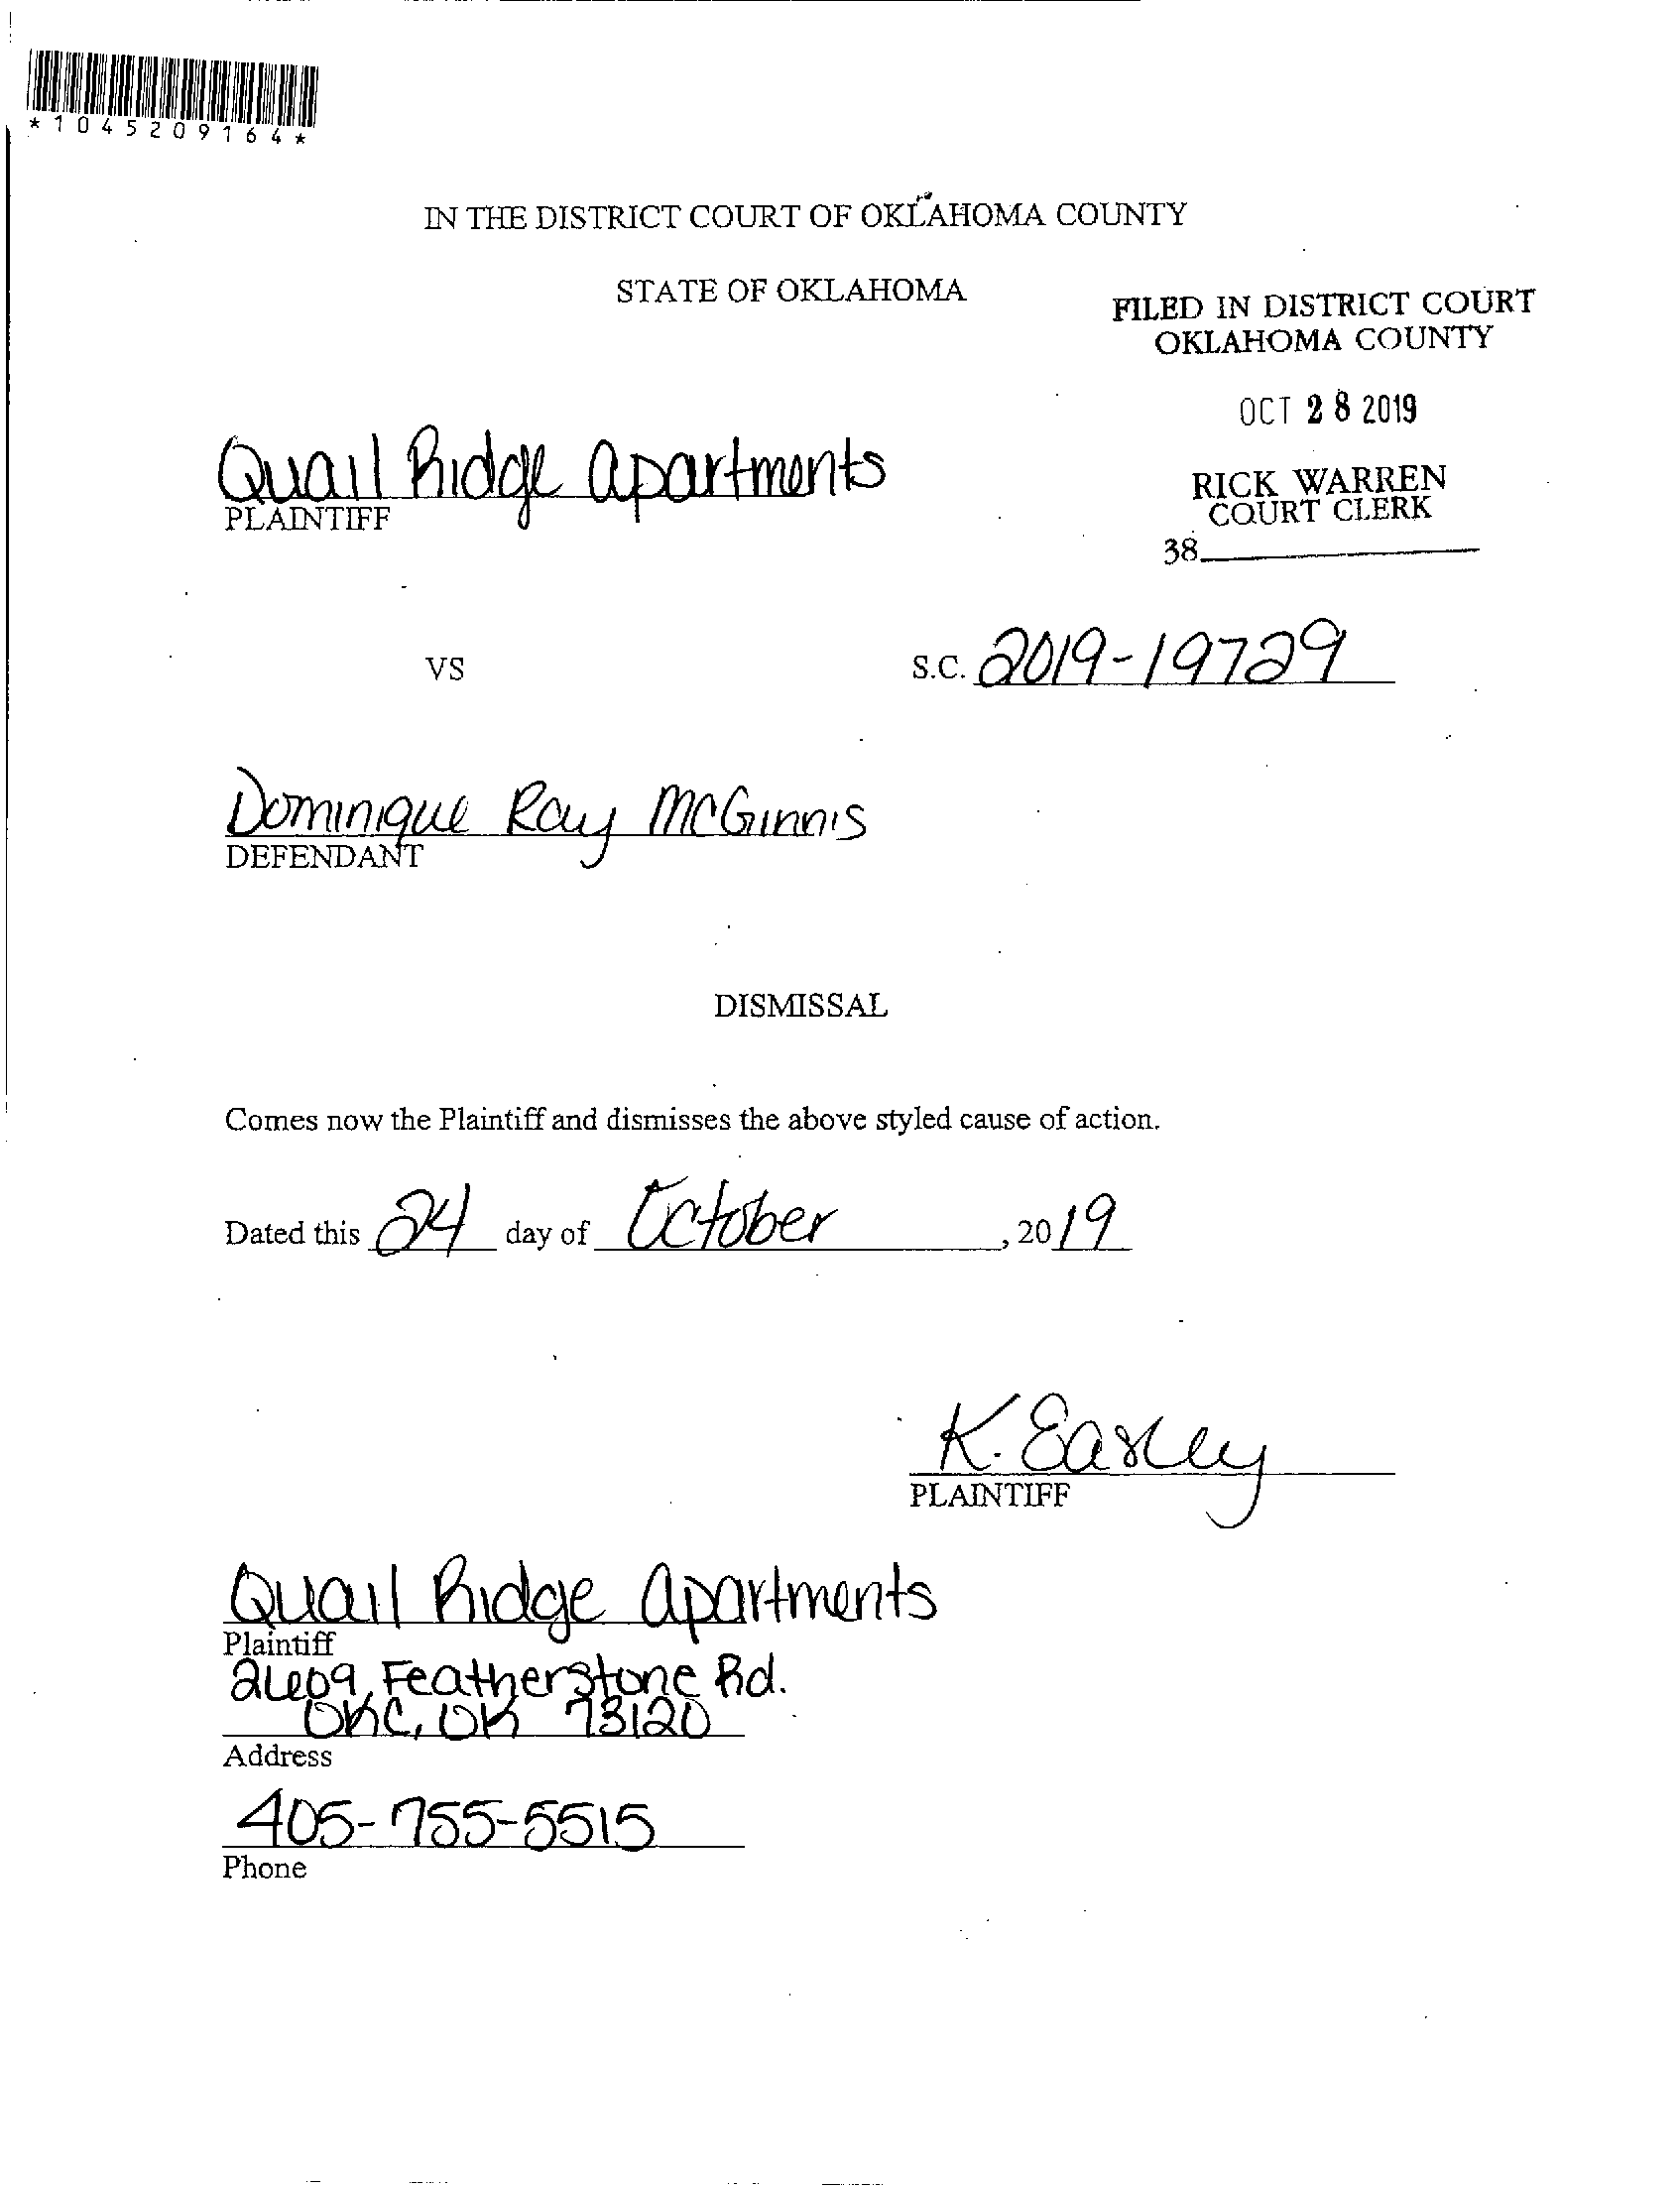 *1045209164*
IN THE DISTRICT COURT OF OKLAHOMA COUNTY
STATE OF OKLAHOMA
FILED IN DISTRICT COURT
OKLAHOMA COUNTY
OCT 28 2019
RICK WARREN
COURT CLERK
38
Quail Ridge Apartments
PLAINTIFF
VS
S.C. 2019-19729
Dominique Ray McGinnis
DEFENDANT
DISMISSAL
Comes now the Plaintiff and dismisses the above styled cause of action.
Dated this 24 day of October, 2019
K. Easley
PLAINTIFF
Quail Ridge Apartments
Plaintiff
2609 Featherstone Rd.
OKC, OK 73120
Address
405-755-5515
Phone